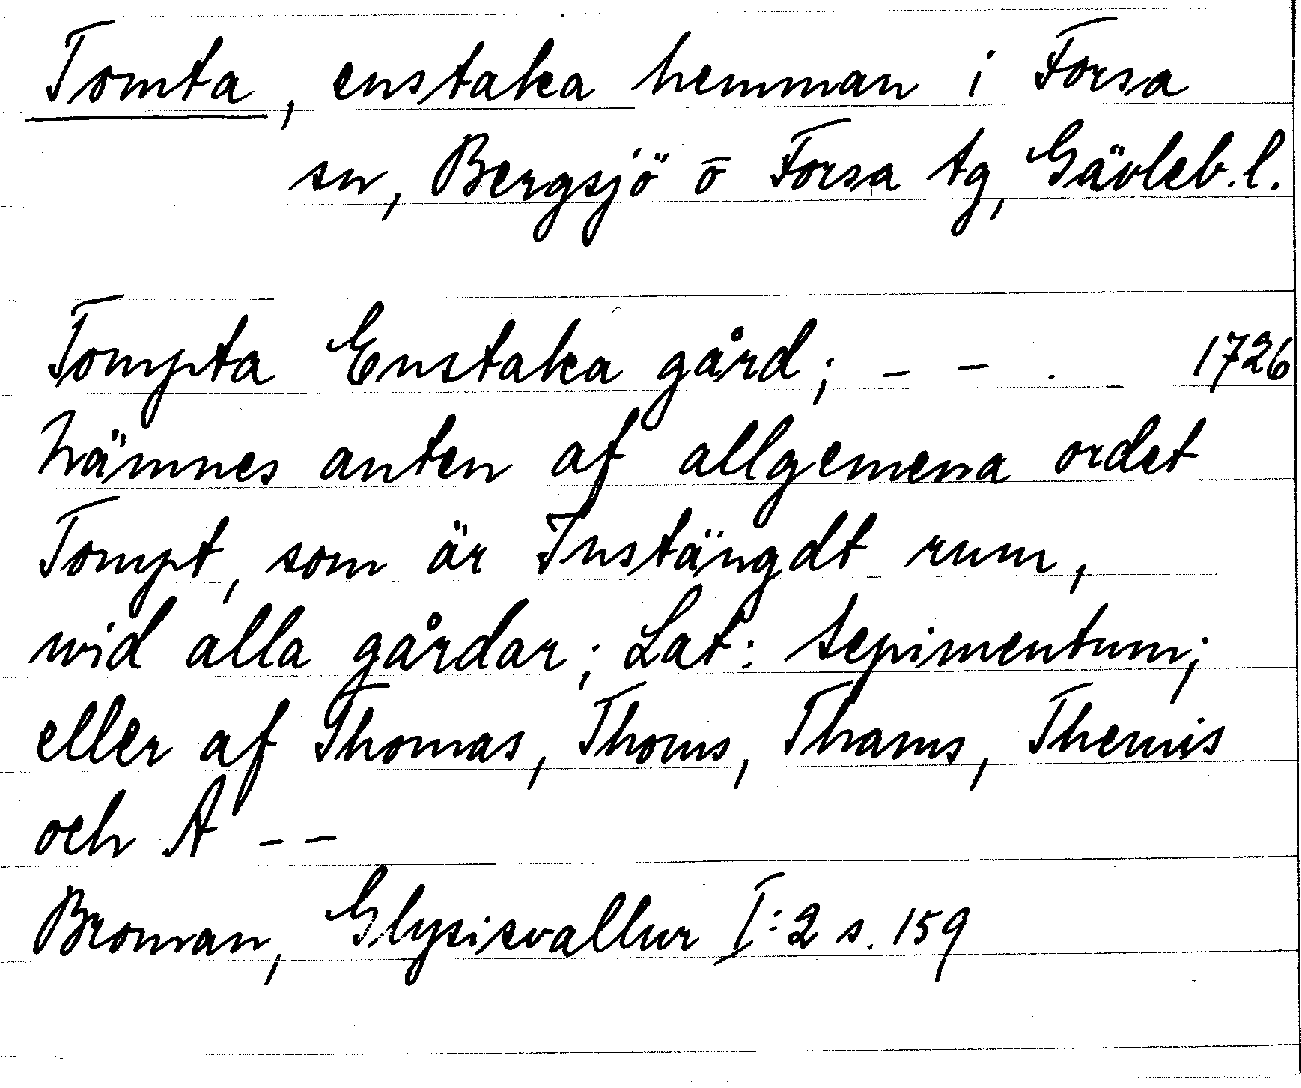 Tomta, enstaka hemman i Forsa
sn, Bergsjö o Forsa tg, Gävleb.l.
Tompta Enstaka gård; - - . - 1726
nämnes anten af allgemena ordet
Tompt, som är Instängdt rum,
wid alla gårdar; Lat: sepimentum;
eller af Thomas, Thoms, Thams, Themis
och A - -
Broman, Glysisvallur I:2 s. 159